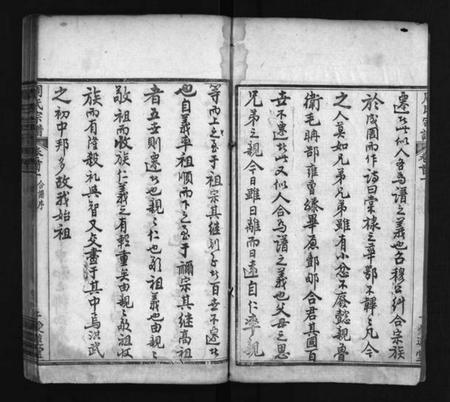 遷於此似人合為譜之義也古穆公糾合宗族
於成周而作詩曰棠棣之華鄂不韡韡凡今
之人莫如兄弟兄弟雖有小忿不廢懿親魯
衛毛聃郜雍曹滕畢原酆郇合君其國百
世不遷於此又似人合為譜之義也父母之恩
兄弟之親今日雖日離而日遠自仁率親
等而上之至于祖宗其繼別子於百世不遷於
也自義率祖順而下之至于禰宗其繼高祖
者五世則遷於也親親仁也敬祖義也由親親
敬祖而收族仁義之有輕重矣由親親敬祖收
族而有隆殺禮與智又交盡于其中焉洪武
之初中邦多故我始祖
周氏宗譜